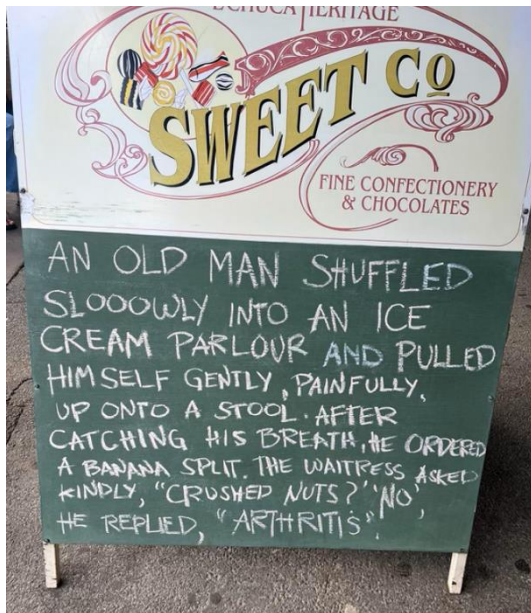 ECHUCA HERITAGE
SWEET CO
FINE CONFECTIONERY
& CHOCOLATES
AN OLD MAN SHUFFLED
SLOOOWLY INTO AN ICE
CREAM PARLOUR AND PULLED
HIMSELF GENTLY, PAINFULLY,
UP ONTO A STOOL. AFTER
CATCHING HIS BREATH, HE ORDERED
A BANANA SPLIT. THE WAITRESS ASKED
KINDLY, "CRUSHED NUTS?" 'NO',
HE REPLIED, "ARTHRITIS".